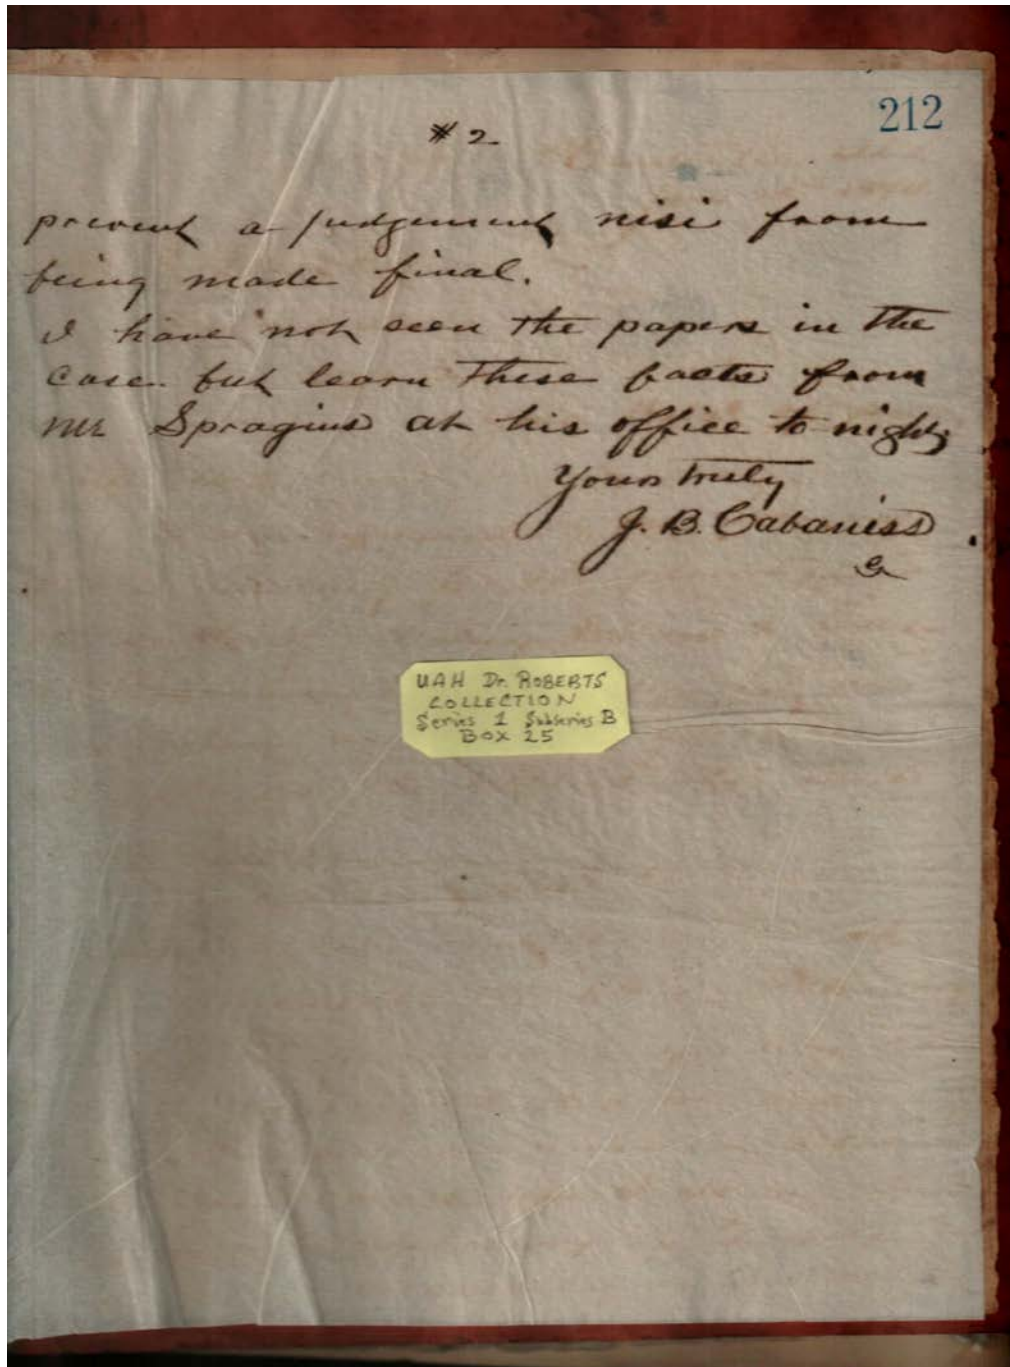 212
# 2
prevent a judgement nisi from
being made final.
I have not seen the papers in the
case but learn these facts from
Mr Spragins at his office to night.
Yours truly
J. B. Cabaniss
UAH Dr. ROBERTS
COLLECTION
Series 1 Subseries B
BOX 25